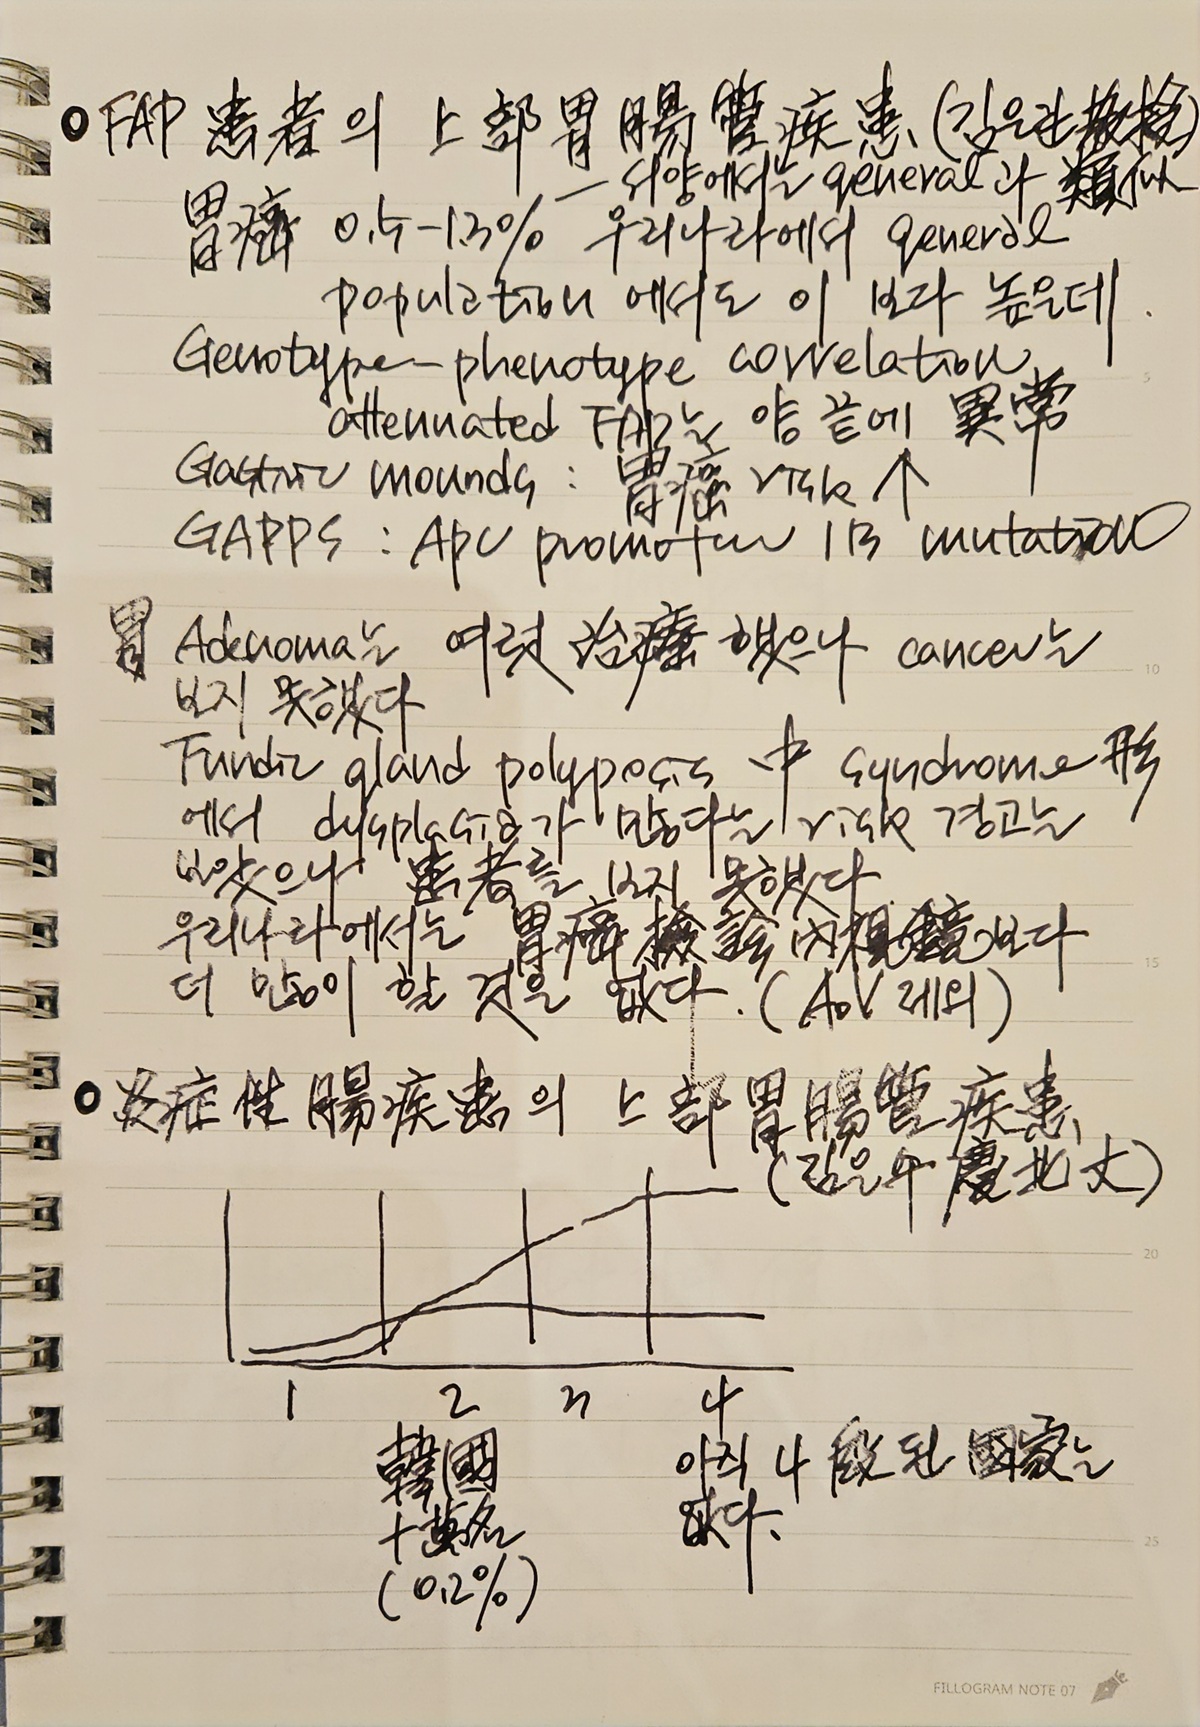 FAP 患者의 上部胃腸管疾患 (김은란 敎授)
- 서양에서는 general과 類似
胃癌 0.5-1.3% 우리나라에서 general
population에서도 이보다 높은데.
Genotype-phenotype correlation
attenuated FAP는 양 끝에 異常
Gastric mounds : 胃癌 risk ↑
GAPPS : APC promoter 1B mutation
胃 Adenoma는 여럿 治療했으나 cancer는
보지 못했다
Fundic gland polyposis 中 syndrome形
에서 dysplasia가 많다는 risk 경고는
보았으나 患者를 보지 못했다
우리나라에서는 胃癌檢診內視鏡보다
더 많이 할 것은 없다. (AoV 제외)
炎症性腸疾患의 上部胃腸管疾患
(김은수 慶北大)
1 2 3 4
韓國 아직 4段된 國家는
十萬名 없다.
(0.2%)
5
10
15
20
25
FILLOGRAM NOTE 07